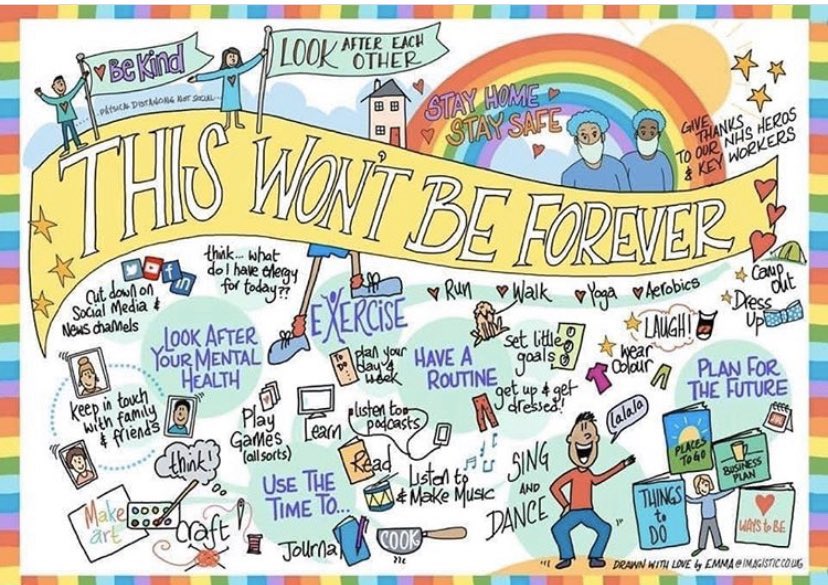 Be Kind
LOOK AFTER EACH
OTHER
PHYSICAL DISTANCING NOT SOCIAL...
STAY HOME
STAY SAFE
GIVE
THANKS
TO OUR NHS HEROS
& KEY WORKERS
THIS WON'T BE FOREVER
Cut down on
Social Media &
News channels
think... what
do I have energy
for today??
EXERCISE
Run
Walk
Yoga
Aerobics
Camp
out
Dress
Up
LAUGH!
wear
Colour
LOOK AFTER
YOUR MENTAL
HEALTH
TO
DO
plan your
day &
week
HAVE A
ROUTINE
Set little
goals
get up & get
dressed!
PLAN FOR
THE FUTURE
keep in touch
with family
& friends
think!
Play
Games
(all sorts)
Learn
listen to
podcasts
Read
Listen to
& Make Music
lalala
SING
AND
DANCE
PLACES
TO GO
BUSINESS
PLAN
THINGS
to
DO
WAYS to BE
USE THE
TIME TO...
Make
art
Craft
Journal
COOK
DRAWN WITH LOVE by EMMA@IMAGISTIC.CO.UK